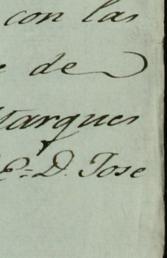 con las
de
Marques
E.= D. Jose